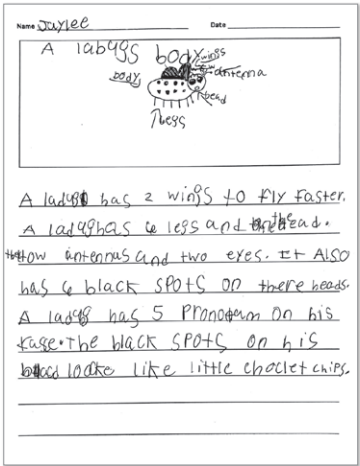 Name Jaylee Date
A labygs body
wings
antenna
body
head
legs
A ladyg has 2 wings to fly faster.
A ladyg has 6 legs and the head.
tow antennas and two eyes. It Also
has 6 black spots on there heads.
A ladyg has 5 on his
The black spots on his
looke like little choclet chips.